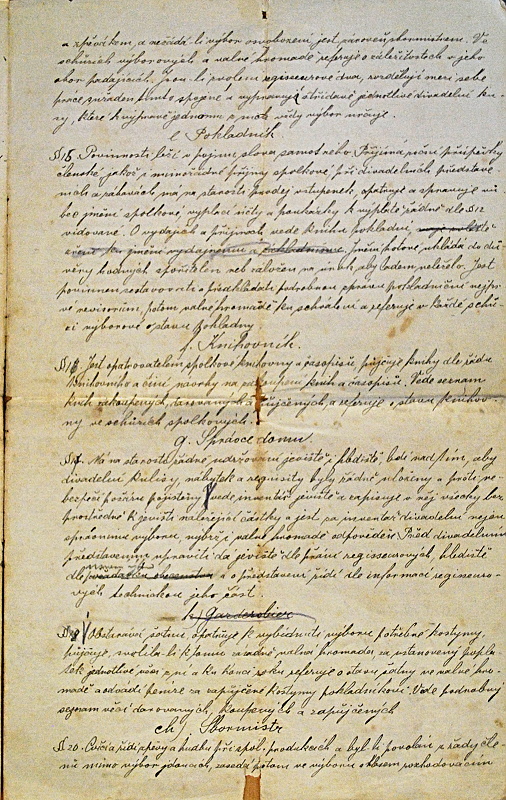 a zpěvákem, a nežádá-li výbor osvobození jest zároveň sbormistrem. Ve
schůzích výborových a valné hromadě referuje o záležitostech v jeho
obor padajících. Jsou-li zvoleni regisseurové dva, rozdělují mezi sebe
práce a střídavě jednotlivé divadelní ku-
sy, které k výpravě jednomu z nich vždy výbor určuje.
e Pokladník.
§ 15. Povinnosti leží v pojmu slova samotného. Přijímá roční příspěvky
členské, jakož i mimořádné příjmy spolkové při divadelních představe-
ních a zábavách má na starosti prodej vstupenek, opatruje a spravuje ve
jmění spolkové, vyplácí účty a poukázky k výplatě řádně dle § 12
vidované. O vydajích a příjmech vede knihu pokladní,
Jmění hotové ukládá do dů-
věry hodných spořitelen neb záložen na úrok, aby ladem neleželo. Jest
povinnen sestavovati a předkládati potřebnou zprávu pokladniční nejpr-
ve revisorům, potom valné hromadě ku schválení a referuje v každé schů-
zi výborové o stavu pokladny
f. Knihovník.
§ 16. Jest opatrovatelem spolkové knihovny a časopisů, půjčuje knihy dle řádu
knihovního a činí návrhy na zakoupení knih a časopisů. Vede seznam
knih zakoupených, darovaných a půjčených, a referuje o stavu knihov-
ny ve schůzích spolkových.
g. Správce domu.
§ 17. Má na starosti řádné udržování jeviště i hlediště, bdí nad tím, aby
divadelní kulisy, nábytek a requisity byly řádně uloženy a proti ne-
bezpečí požáru pojištěny, vede inventář jeviště a zapisuje v něj všecky bez-
prostředně k jevišti náležející částky a jest za inventář divadelní nejen
správnímu výboru, nýbrž i valné hromadě odpověděn. Před divadelním
představením upraviti dá jeviště dle přání regisseurových, hlediště
dle a o představení řídí dle informací regisseuro-
vých technickou jeho část.
h) Garderobier
§ Obstarává šatnu, opatruje k vybídnutí výboru potřebné kostymy,
půjčuje, svolila-li k tomu zásadně valná hromada za ustanovený popla-
tek jednotlivé věci z ní a ku konci roku referuje o stavu šatny ve valné hro-
madě a odvádí peníze za zapůjčené kostymy pokladníkovi. Vede podrobný
seznam věcí darovaných, koupených a zapůjčených
ch) Sbormistr
§ 20. Cvičí a řídí zpěvy a hudbu při spol. produkcích a byl-li povolán z řady čle-
nů mimo výbor jdoucích, zasedá potom ve výboru s hlasem rozhodovacím